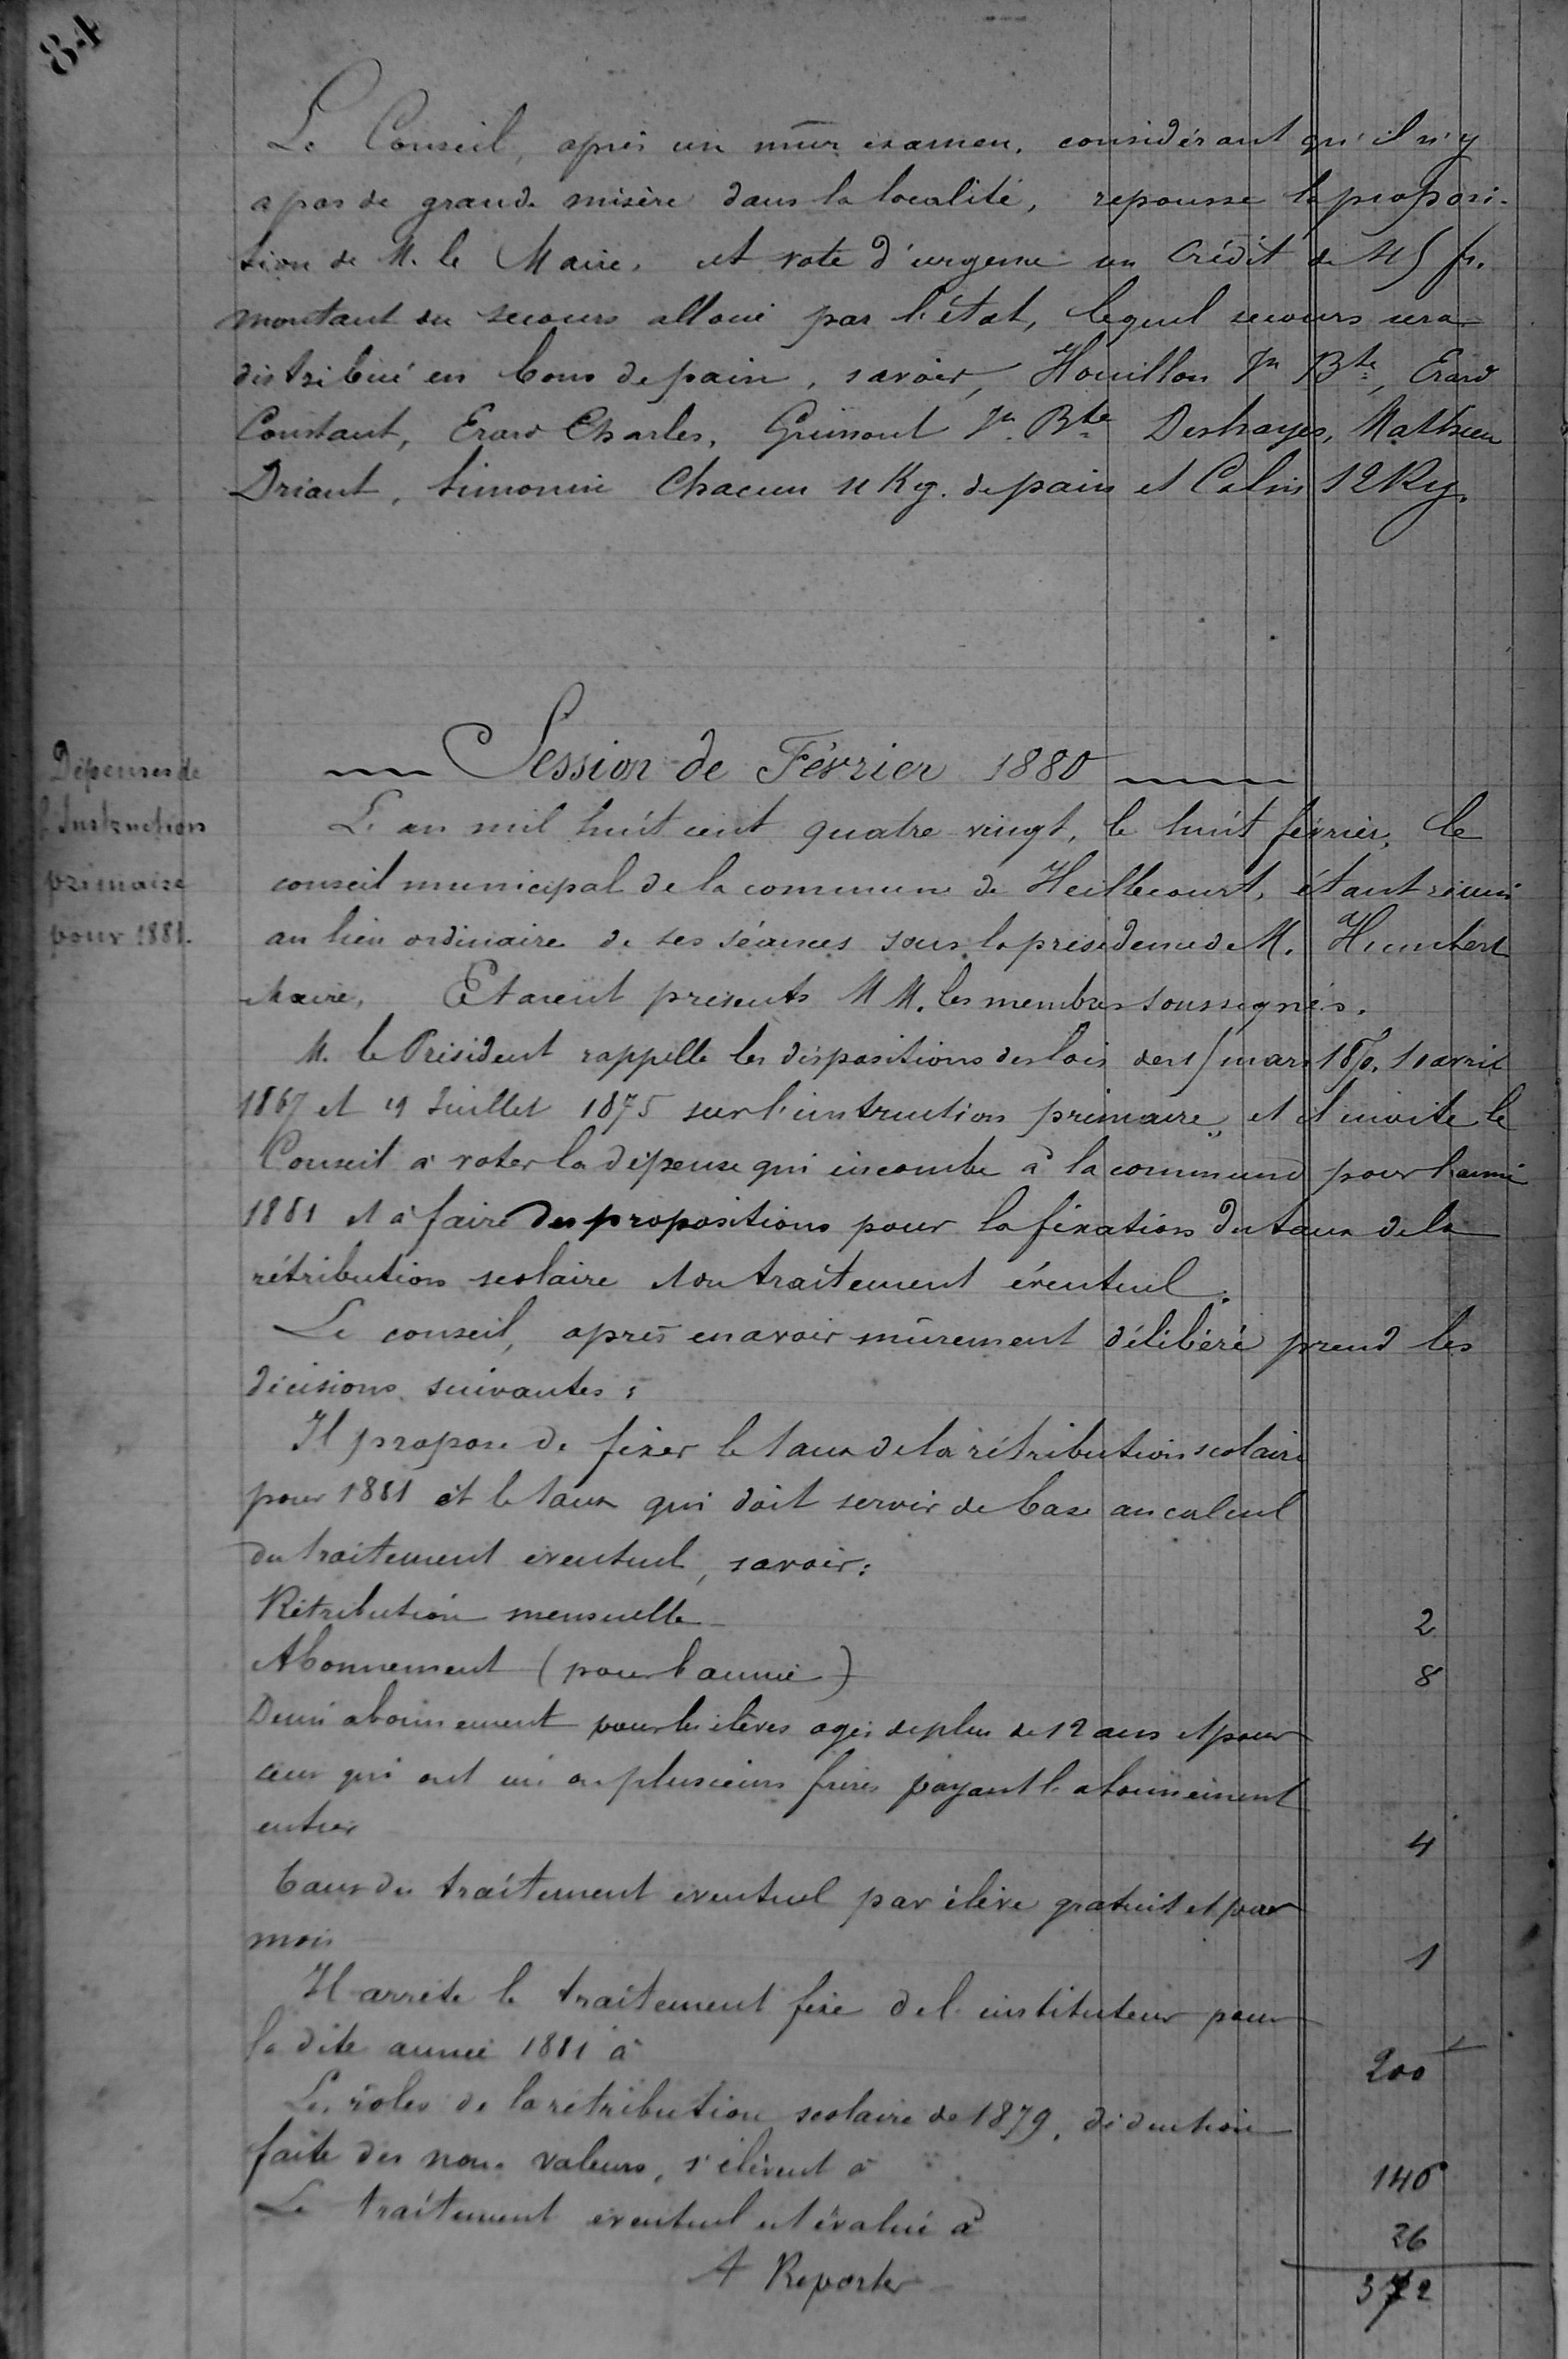 84
Le Conseil, après un mûr examen, considérant qu'il n'y
a pas de grande misère dans la localité, repousse la proposi-
tion de M. le Maire, et vote d'urgence un crédit de 45 fr.
montant du secours alloué par l'état, lequel secours sera
distribué en bons de pain, savoir, Houillon Jn Bte, Erard
Constant, Erard Charles, Jn. Bte Deshayes, Mathieu
Driant, Simonin chacun 11 Kg. de pain et Colin 12 Kg.
Dépenses de
l'Instruction
primaire
pour 1881.
Session de Février 1880
L'an mil huit cent quatre vingt, le huit février, le
conseil municipal de la commune de Heillecourt, étant réuni
au lieu ordinaire de ses séances sous la présidence de M. Humbert
Maire. Etaient présents MM. les membres soussignés.
M. le Président rappelle les dispositions des lois des 15 mars 1850, 10 avril
1867 et 19 Juillet 1875 sur l'intruction primaire, et il invite le
Conseil à voter la dépense qui incombe à la commune pour l'année
1881 et à faire des propositions pour la fixation du taux de la
rétribution scolaire et du traitement éventuel.
Le conseil, après en avoir mûrement délibéré prend les
décisions suivantes :
Il propose de fixer le taux de la rétribution scolaire
pour 1881 et le taux qui doit servir de base au calcul
du traitement éventuel, savoir :
Rétribution mensuelle 2
Abonnement (pour l'année) 8
Demi abonnement pour les élèves agés de plus de 12 ans et pour
ceux qui ont un ou plusieurs frères payant l'abonnement
entier 4
Taux du traitement éventuel par élève gratuit et par
mois 1
Il arrête le traitement fixe de l'instituteur pour
la dite année 1881 à 200
Les rôles de la rétribution scolaire de 1879, déduction
faite des non valeurs, s'élèvent à 146
Le traitement éventuel est évalué à 26
A Reporter 372